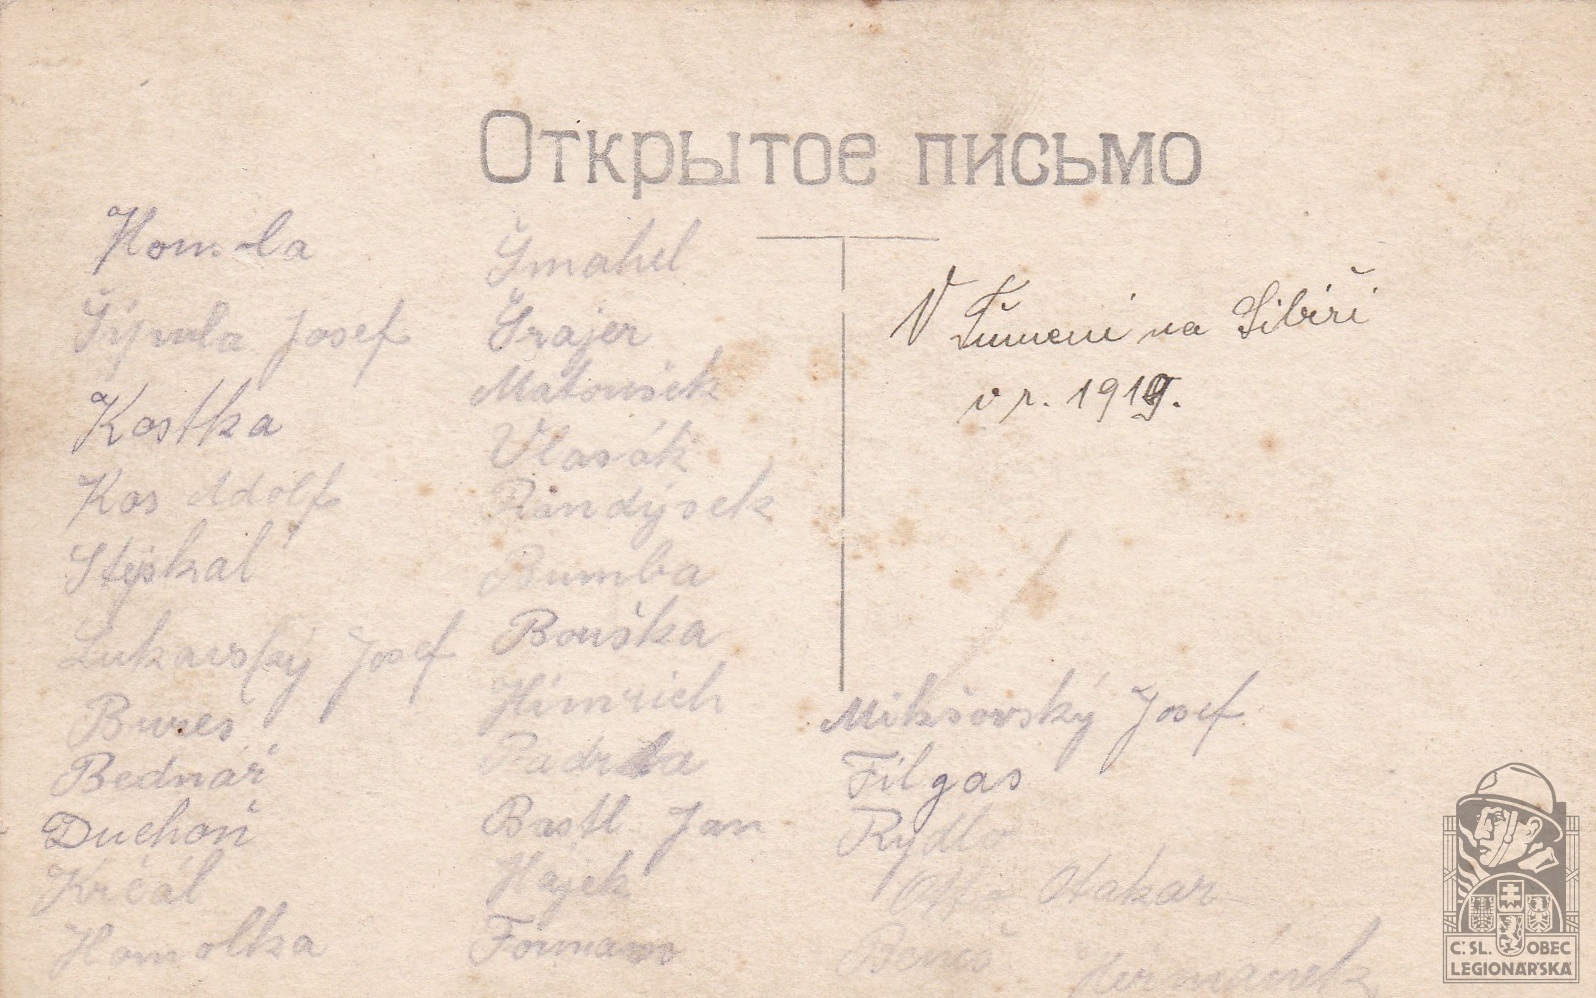 Открытое письмо
Homola
Šípula Josef
Kostka
Kos Adolf
Stýskal
Lukavský Josef
Bureš
Bednář
Duchoň
Krčál
Homolka
Šmahel
Šrajer
Matoušek
Vlasák
Randýsek
Bumba
Bouška
Himrich
Padrla
Bastl Jan
Hájek
Forman
V Ťumeni na Sibíři
v r. 1919.
Mikšovský Josef
Filgas
Rydlo
Otakar
Beneš Heřmánek
Č.SL. OBEC
LEGIONÁŘSKÁ